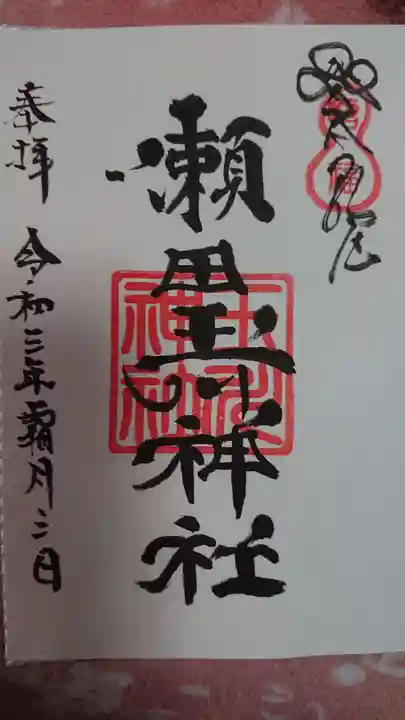 瀬田玉川神社
玉川
神社
奉拝 令和三年霜月三日